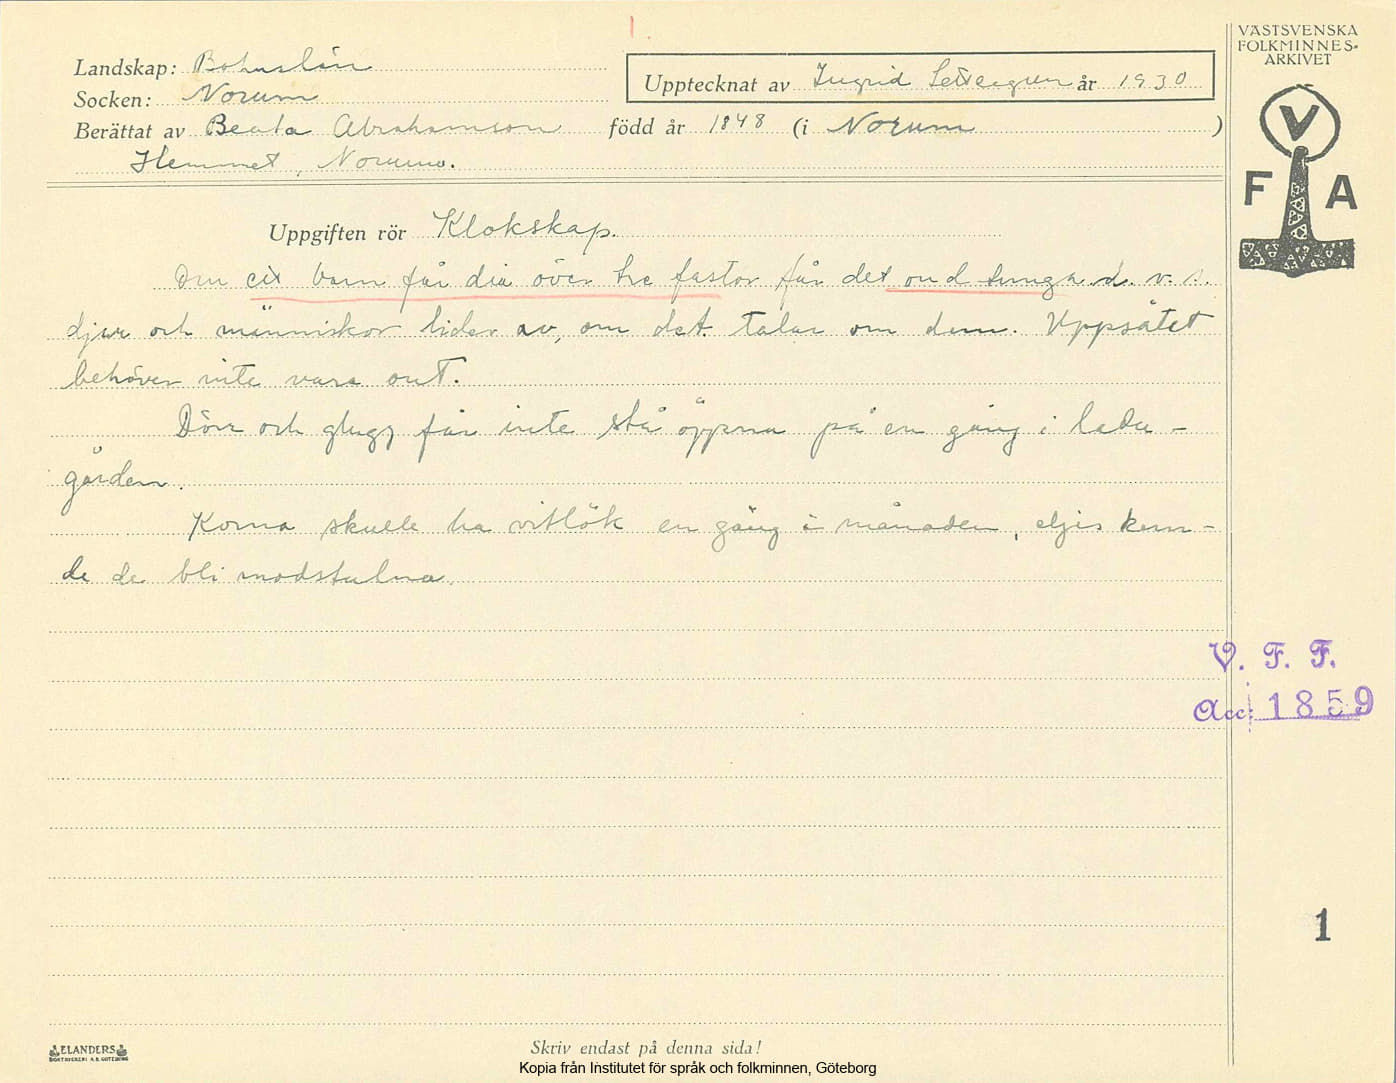 VÄSTSVENSKA
FOLKMINNES-
ARKIVET
Landskap: Bohuslän
Upptecknat av Ingrid år 1930
Socken: Norum
Berättat av Beata Abrahamson född år 1848 (i Norum )
Hemmet, Norum.
V
F A
Uppgiften rör Klokskap.
Om ett barn får dia över tre fastor får det ond tunga d. v. s.
djur och människor lider av, om det talar om dem. Uppsåtet
behöver inte vara ont.
Dörr och glugg får inte stå öppna på en gång i ladu-
gården.
Korna skulle ha vitlök en gång i månaden, eljes kun-
de de bli modstulna.
V. F. F.
Acc. 1859
1
ELANDERS
BOKTRYCKERI A.B. GÖTEBORG
Skriv endast på denna sida!
Kopia från Institutet för språk och folkminnen, Göteborg